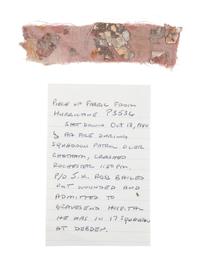 PIECE OF FABRIC FROM
HURRICANE P3536
SHOT DOWN OCT 13, 1940
BY AA FIRE DURING
SQUADRON PATROL OVER
CHATHAM, CRASHED
ROCHESTER
P/O J.K. ROSS BAILED
OUT WOUNDED AND
ADMITTED TO
GRAVESEND HOSPITAL
HE WAS IN 17 SQUADRON
AT DEBDEN.